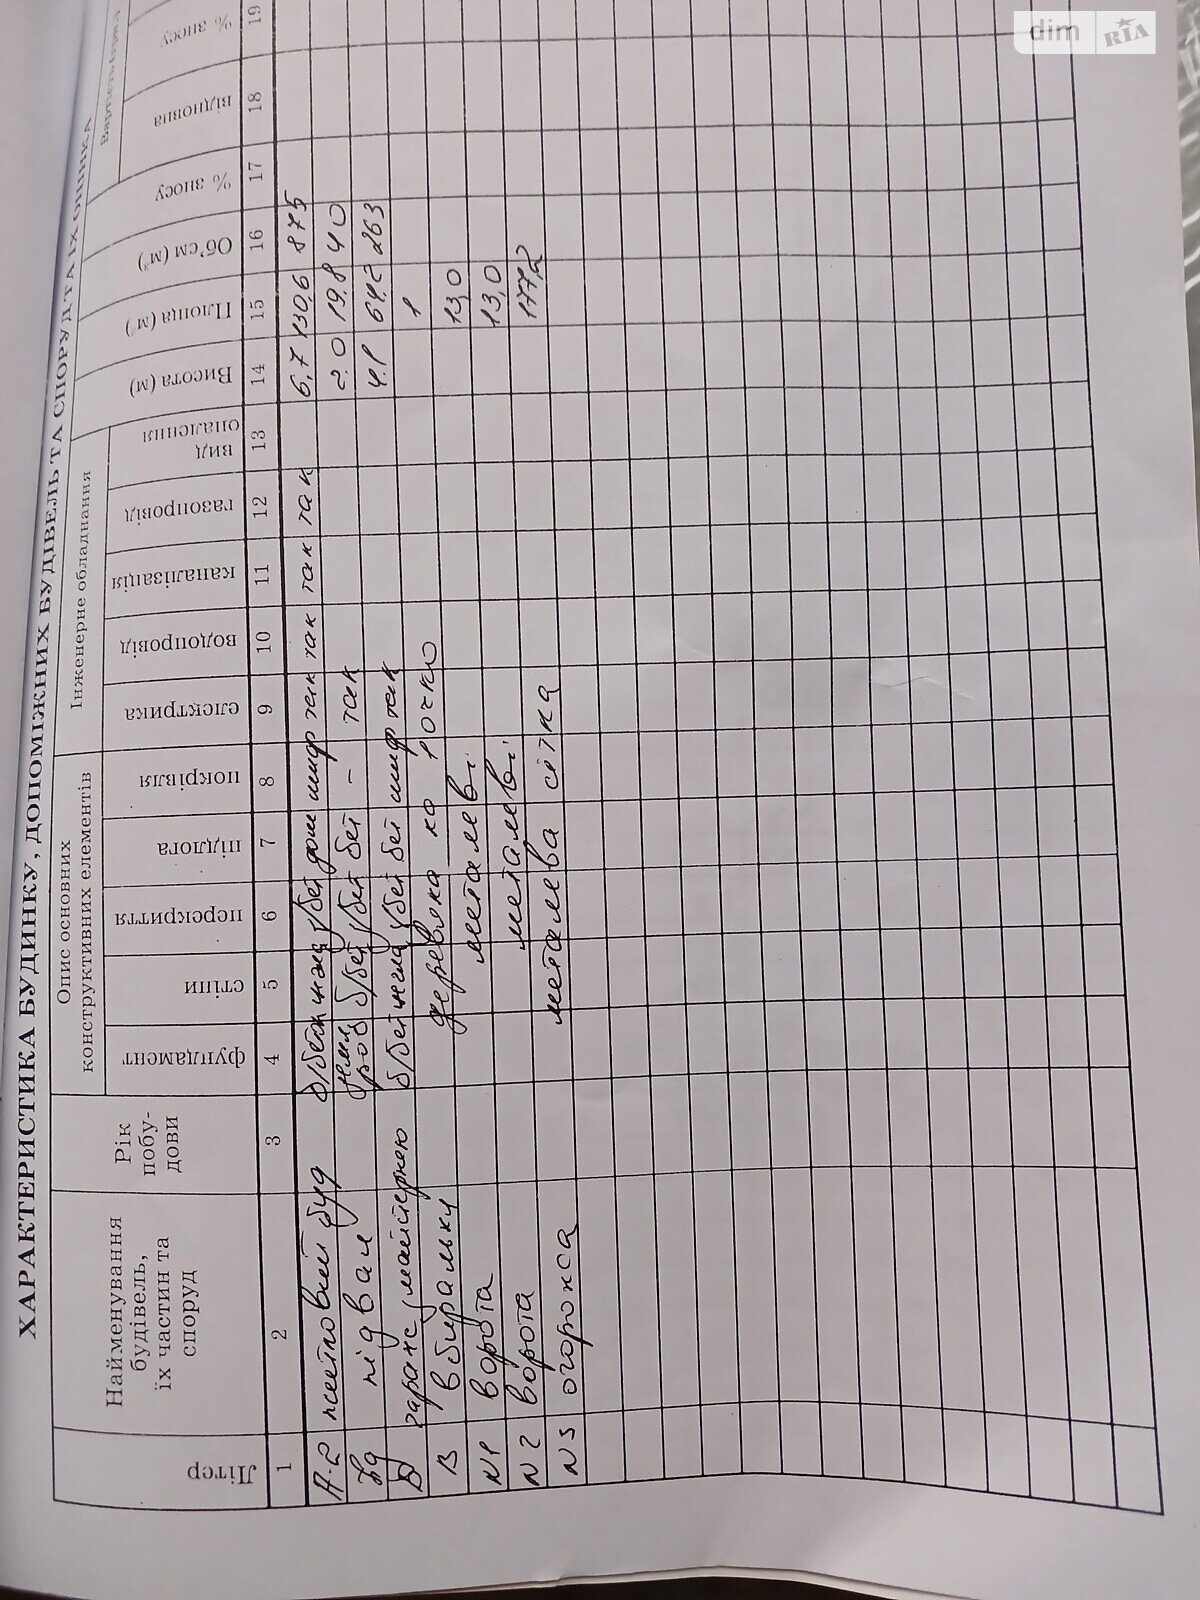 ХАРАКТЕРИСТИКА БУДИНКУ, ДОПОМІЖНИХ БУДІВЕЛЬ ТА СПОРУД ТА ЇХ ОЦІНКА
Літер
Найменування будівель, їх частин та споруд
Рік побу-дови
Опис основних конструктивних елементів
Інженерне обладнання
фундамент
стіни
перекриття
підлога
покрівля
електрика
водопровід
каналізація
газопровід
вид опалення
Висота (м)
Площа (м²)
Об'єм (м³)
% зносу
відновна
% зносу
1 2 3 4 5 6 7 8 9 10 11 12 13 14 15 16 17 18 19
А-2 житловий буд б/бет цегла з/бет дош шиф так так так так 6,7 130,6 875
підвал б/бет з/бет бет – так 2.0 19.8 40
гараж з майстернею б/бет цегла з/бет бет шиф так 4.1 64.2 263
В вбиральня дерев'яна 1
N1 ворота металеві 13,0
N2 ворота металеві 13,0
N3 огорожа металева сітка 177,2
dim RIA